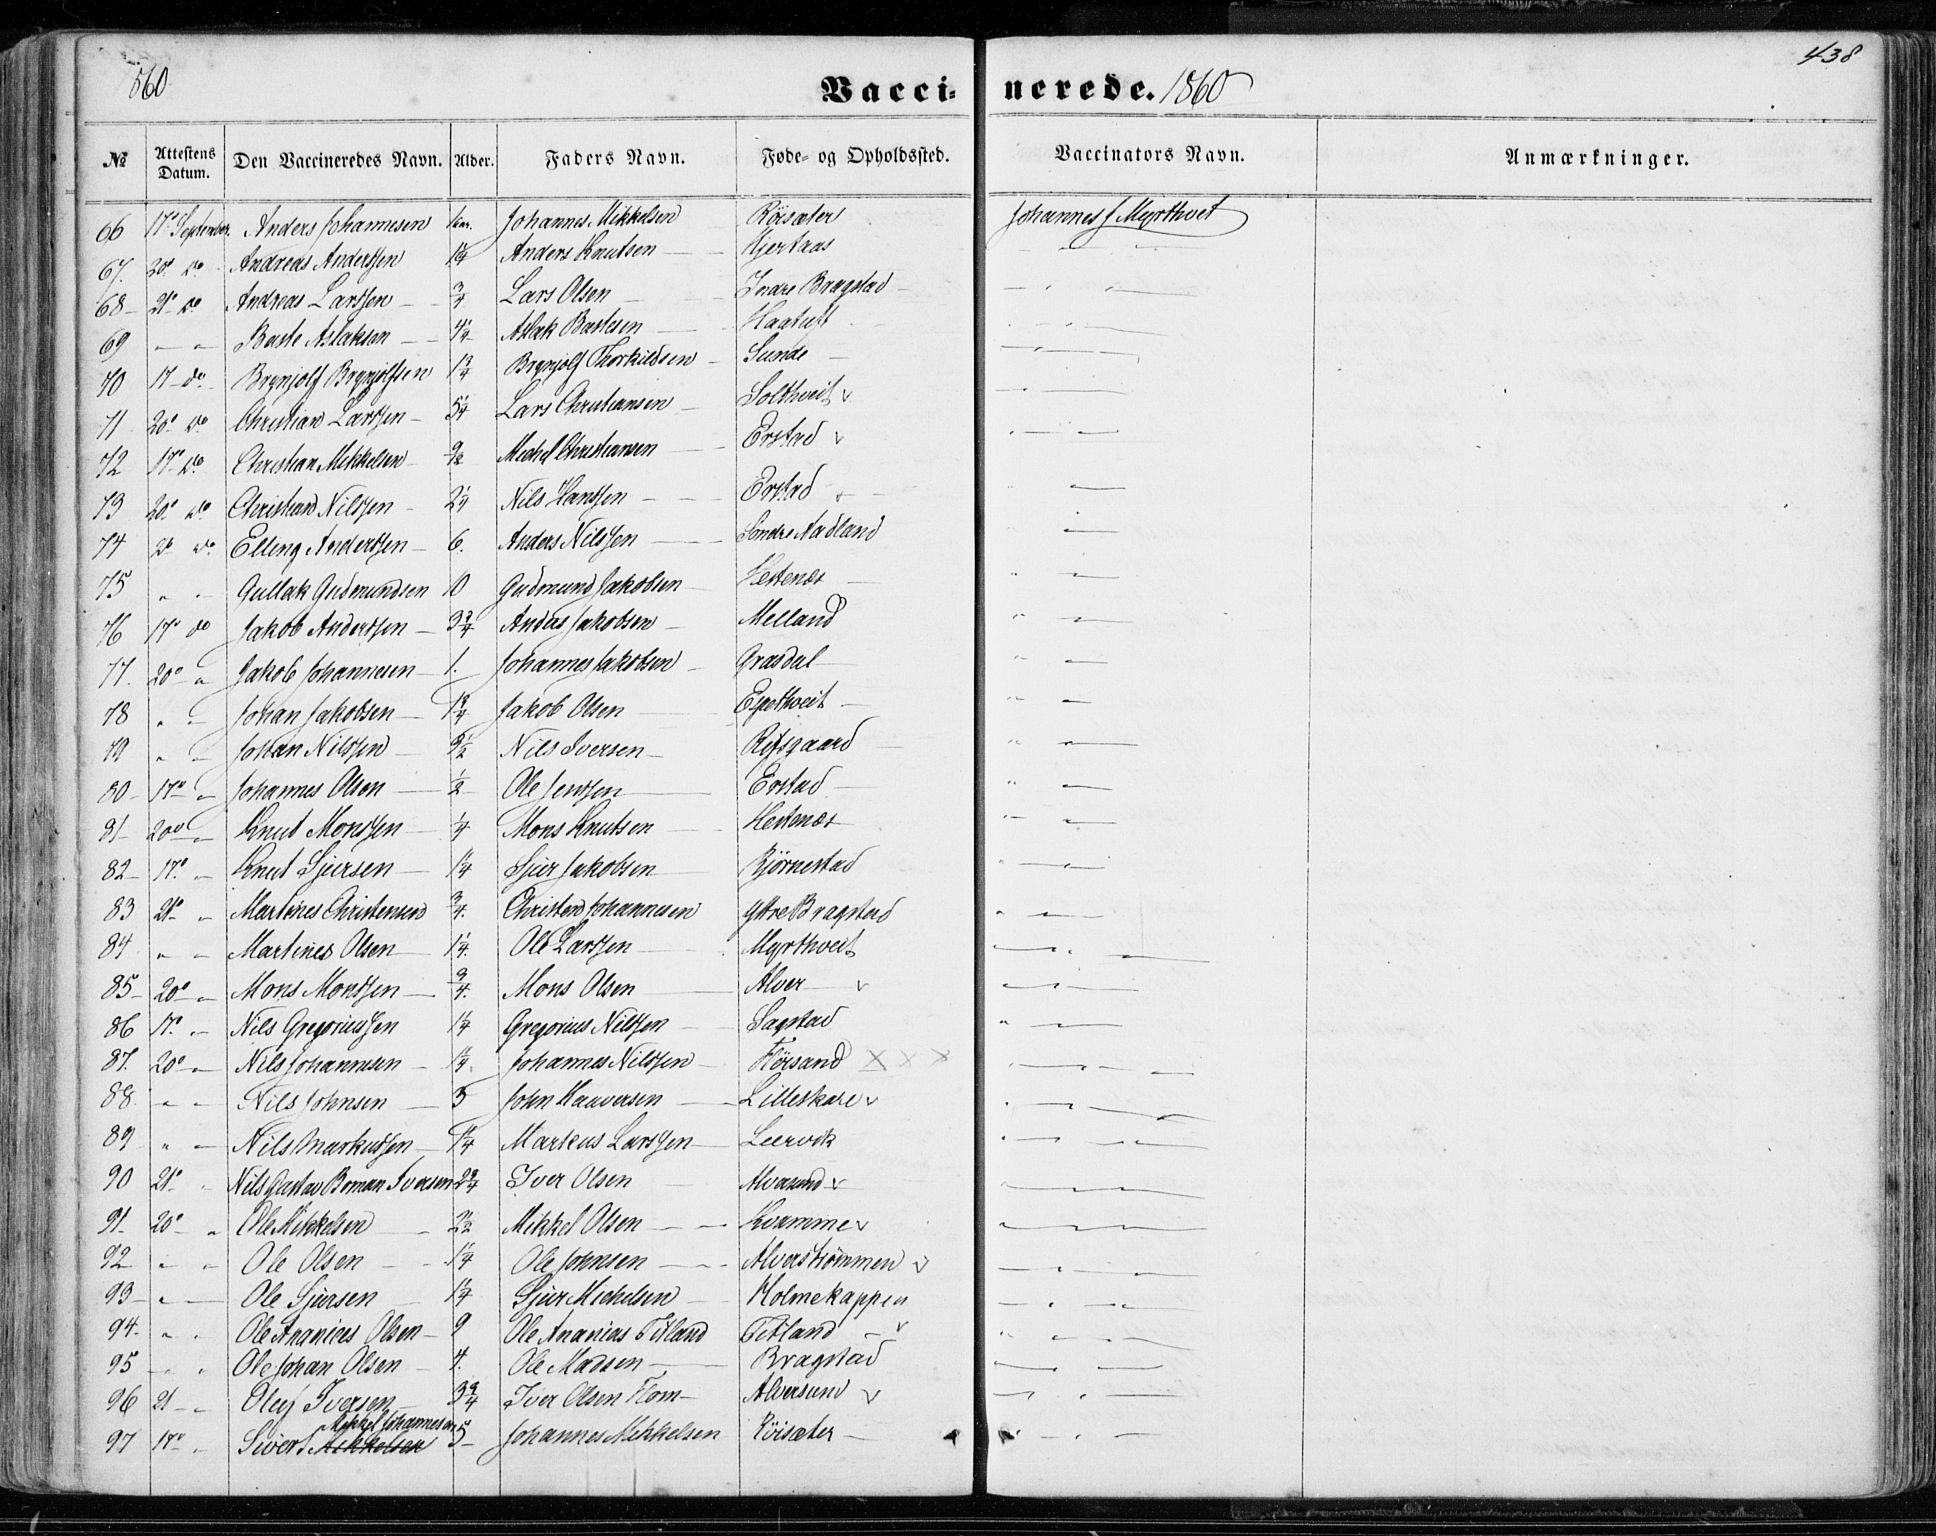 438
1860
Vacci-
nerede. 1860
№ Attestens Datum. Den Vaccineredes Navn. Alder. Faders Navn. Føde- og Opholdssted. Vaccinators Navn. Anmærkninger.
66 17de September Anders Johannesen 1 aar. Johannes Mikkelsen Röisæter Johannes J Myrthvet
67. 20de do Andreas Anderssen 1 1/4 Anders Knutsen Hjertaas
68 21de do Andreas Larssen 3/4 Lars Olsen Indre Bragstad
69 " " Baste Aslaksen 4 1/4 Aslak Bastesen Haatuft
70 17 do Brynjolf Brynjolfsen 1 3/4 Brynjolf Thorkildsen Sunde
71 20de do Christian Larssen 5 1/4 Lars Christiansen Soltveit v
72 17de do Christian Mikkelsen Michel Christiansen Erstad v
73 20de do Christian Nilssen 2 1/4 Nils Hanssen Erstad v
74 do do Elling Anderssen 6. Anders Nilssen Söndre Aadland
75 " " Gullak Gudmundsen 10 Gudmund Jakobsen Hestenæs
76 17de do Jakob Anderssen 3 3/4 Anders Jakobsen Melland
77. 20de " Jakob Johannesen 1. Johannes Jakobsen Grasdal
78 " " Johan Jakobsen 1 3/4 Jakob Olsen Espethveit
79 " " Johan Nilssen Nils Iversen Refsgaard
80 17de " Johannes Olsen 1/2 Ole Jenssen Erstad
81 20de " Knut Monssen 1/4 Mons Knutsen Hestenæs
82 17de " Knut Sjursen 1 1/4 Sjur Jakobsen Bjørnestad
83 21de " Martines Christensen 3/4. Christen Johannesen Ytre Bragstad
84 " " Martines Olsen 1 1/4. Ole Larssen Myrthveit
85 20de " Mons Monssen 3/4. Mons Olsen Alver v
86 17de " Nils Gregoriussen 1 1/4 Gregorius Nilssen Sagstad
87. 20de " Nils Johannesen 1 1/4. Johannes Nilssen Flöisand X X X
88 " " Nils Johnsen 5 John Haaversen Lilleskare v
89 " " Nils Markussen 1 1/4 Markus Larssen Leervik
90 21de " Nils Gustav Boman Iversen 2 3/4 Iver Olsen Alversund v
91. 20de " Ole Mikkelsen 2 1/2 Mikkel Olsen Kvamme v
92 " " Ole Olsen 1 1/4 Ole Johnsen Alverströmmen v
93 " Ole Sjursen 1 1/4 Sjur Michelsen Holmekappen
94. " " Ole Ananias Olsen 9 Ole Ananias Titland Titland v
95 " " Ole Johan Olsen 4. Ole Madsen Bragstad
96 21 " Oluf Iversen 3 3/4 Iver Olsen Flom Alversund v
97 17de " Sivert Mikkelsen Mikkel Johannesen 5 Johannes Mikkelsen Röisæter